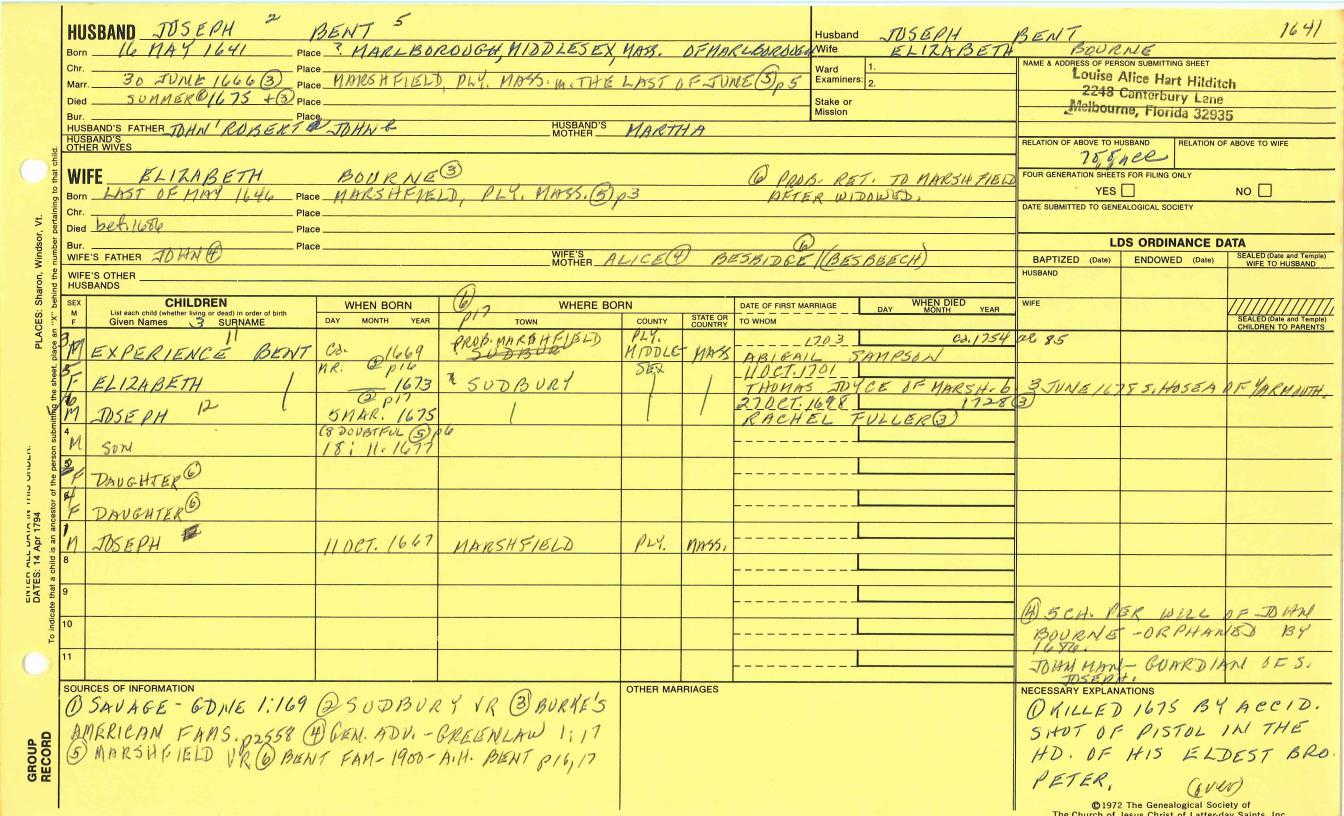 HUSBAND JOSEPH 2 BENT 5
Born 16 MAY 1641 Place ? MARLBOROUGH, MIDDLESEX, MASS. OF MARLBOROUGH
Chr. Place
Marr. 30 JUNE 1666 (3) Place MARSHFIELD, PLY. MASS. m. THE LAST OF JUNE (5) p5
Died SUMMER 1675 + (3) Place
Bur. Place
HUSBAND'S FATHER JOHN ROBERT JOHN HUSBAND'S MOTHER MARTHA
HUSBAND'S OTHER WIVES
Husband JOSEPH BENT 1641
Wife ELIZABETH BOURNE
Ward Examiners: 1.
2.
Stake or Mission
NAME & ADDRESS OF PERSON SUBMITTING SHEET
Louise Alice Hart Hilditch
2248 Canterbury Lane
Melbourne, Florida 32935
RELATION OF ABOVE TO HUSBAND RELATION OF ABOVE TO WIFE
FOUR GENERATION SHEETS FOR FILING ONLY
YES NO
DATE SUBMITTED TO GENEALOGICAL SOCIETY
LDS ORDINANCE DATA
BAPTIZED (Date) ENDOWED (Date) SEALED (Date and Temple) WIFE TO HUSBAND
HUSBAND
WIFE
SEALED (Date and Temple) CHILDREN TO PARENTS
WIFE ELIZABETH BOURNE (3) (6) PROB. RET. TO MARSHFIELD
AFTER WIDOWED.
Born LAST OF MAY 1646 Place MARSHFIELD, PLY. MASS. (5) p3
Chr. Place
Died bef. 1686 Place
Bur. Place
WIFE'S FATHER JOHN (4) WIFE'S MOTHER ALICE (4) BESBIDGE (6) (BESBEECH)
WIFE'S OTHER HUSBANDS
SEX M F
CHILDREN
List each child (whether living or dead) in order of birth
Given Names 3 SURNAME
WHEN BORN
DAY MONTH YEAR
(6) p17
WHERE BORN
TOWN COUNTY STATE OR COUNTRY
DATE OF FIRST MARRIAGE
TO WHOM
WHEN DIED
DAY MONTH YEAR
3 M EXPERIENCE 11 BENT ca. 1669 PROB. MARSHFIELD SUDBURY PLY. MIDDLE- SEX MASS 1703 ca. 1754 ae 85
ABIGAIL SAMPSON
5 F ELIZABETH NR. (2) p16 1673 SUDBURY 11 OCT. 1701
THOMAS JOYCE OF MARSH. b. 3 JUNE 1678 S. HOSEA OF YARMOUTH.
6 M JOSEPH 12 (2) p17 5 MAR. 1675 27 OCT. 1698 1728 (3)
RACHEL FULLER (3)
4 M SON (8 DOUBTFUL (5) p6
18: 11. 1677
2 F DAUGHTER (6)
4 F DAUGHTER (6)
1 M JOSEPH 11 OCT. 1667 MARSHFIELD PLY. MASS.
8
9
10
11
(4) 5 CH. PER WILL OF JOHN
BOURNE - ORPHANED BY
1686.
JOHN MAN - GUARDIAN OF S.
JOSEPH.
SOURCES OF INFORMATION
(1) SAVAGE - GDNE 1:169 (2) SUDBURY VR (3) BURKE'S
AMERICAN FAMS. p2558 (4) GEN. ADV. - GREENLAW 1:17
(5) MARSHFIELD VR (6) BENT FAM - 1900 - A.H. BENT p16,17
OTHER MARRIAGES
NECESSARY EXPLANATIONS
(1) KILLED 1675 BY ACCID.
SHOT OF PISTOL IN THE
HD. OF HIS ELDEST BRO.
PETER.
(over)
©1972 The Genealogical Society of
The Church of Jesus Christ of Latter-day Saints, Inc.
GROUP RECORD
ENTER ALL DATA IN THIS ORDER:
DATES: 14 Apr 1794 PLACES: Sharon, Windsor, Vt.
To indicate that a child is an ancestor of the person submitting the sheet, place an "X" behind the number pertaining to that child.